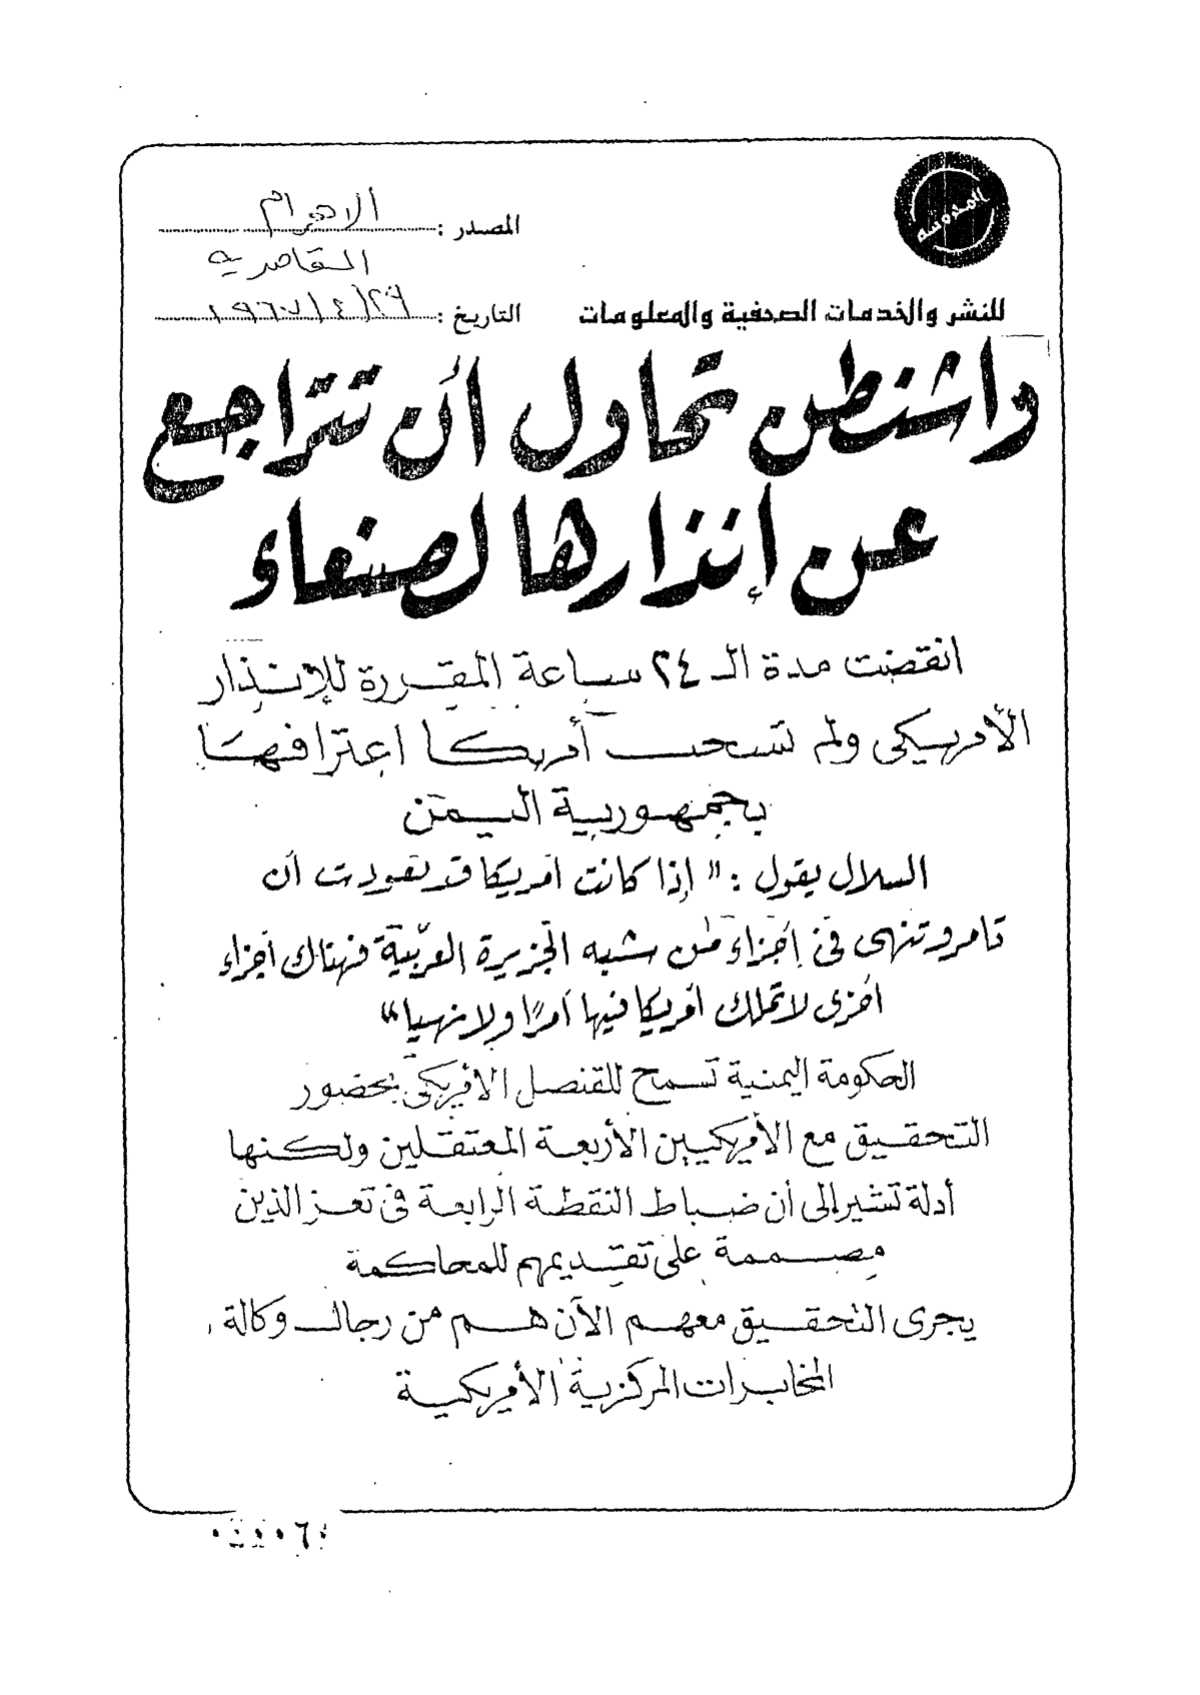 المدوسه
المصدر : الاهرام
القاهريه
للنشر والخدمات الصحفية والمعلومات
التاريخ : ١٩٦٧/٤/٢٩
واشنطن تحاول أن تتراجع
عن إنذارها لصنعاء
انقضت مدة الـ ٢٤ ساعة المقررة للإنذار
الأمريكى ولم تسحب أمريكا اعترافها
بجمهورية اليمن
السلال يقول : " إذا كانت أمريكا قد تعودت أن
تامر وتنهى فى أجزاء من شبه الجزيرة العربية فهناك أجزاء
أخرى لا تملك أمريكا فيها أمرًا ولا نهيا "
الحكومة اليمنية تسمح للقنصل الأمريكى بحضور
التحقيق مع الأمريكيين الأربعة المعتقلين ولكنها
أدلة تشير إلى أن ضباط النقطة الرابعة فى تعز الذين
مصممة على تقديمهم للمحاكمة
يجرى التحقيق معهم الآن هم من رجال وكالة
المخابرات المركزية الأمريكية